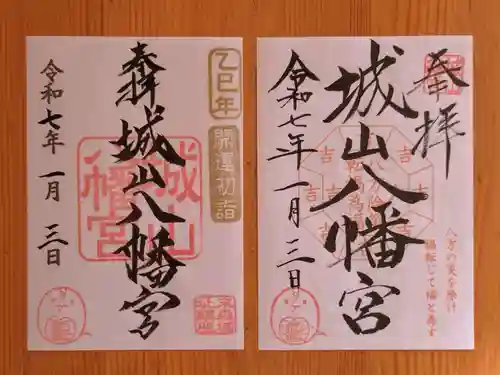 奉拝
城山八幡宮
令和七年一月三日
乙巳年
開運初詣
城山
八幡宮
奉拝
城山八幡宮
令和七年一月三日
吉
吉
吉
吉
吉
吉
八方の災を除け
禍転じて福と為す